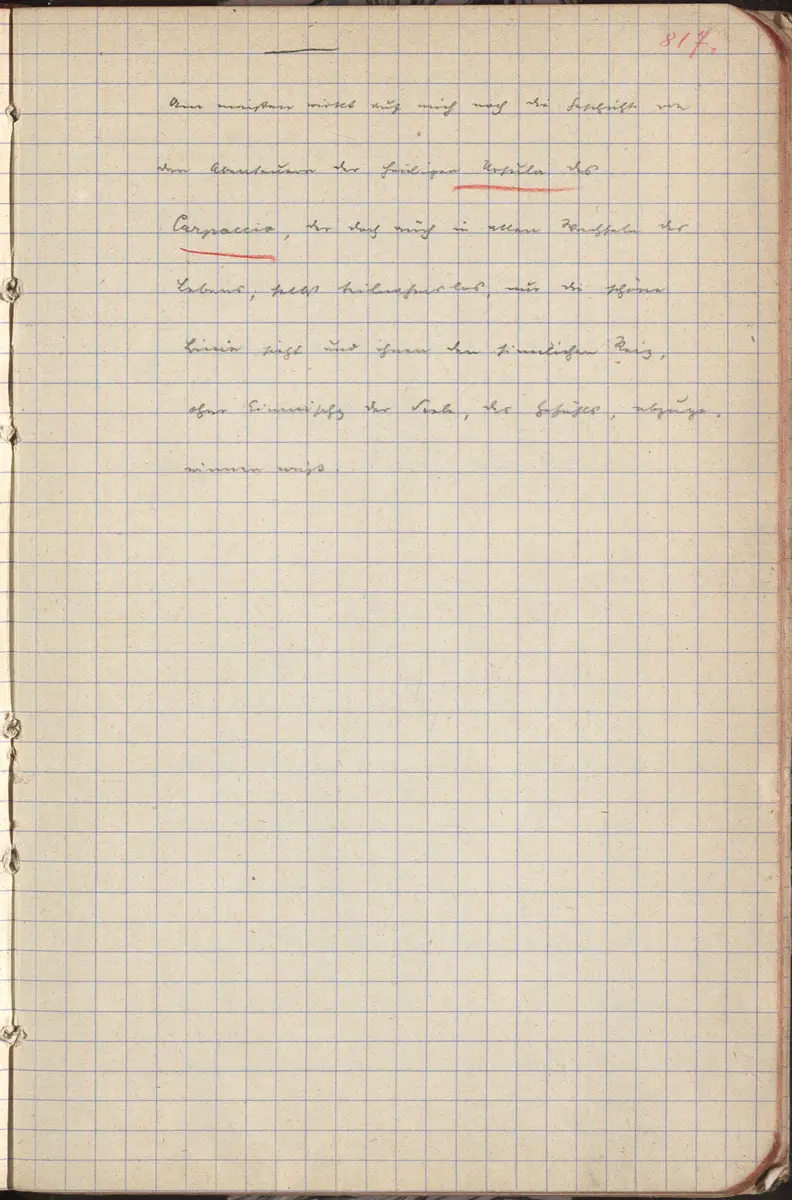 817.
Am meisten wirkt auf mich noch die Geschichte von
den Abenteuern der heiligen Ursula des
Carpaccio, der doch auch in allen Wechseln des
Lebens, selbst teilnahmslos, nur die schöne
Linie sieht und ihnen den sinnlichen Reiz,
ohne Einmischg der Seele, des Gefühls, abzuge-
winnen weiß.